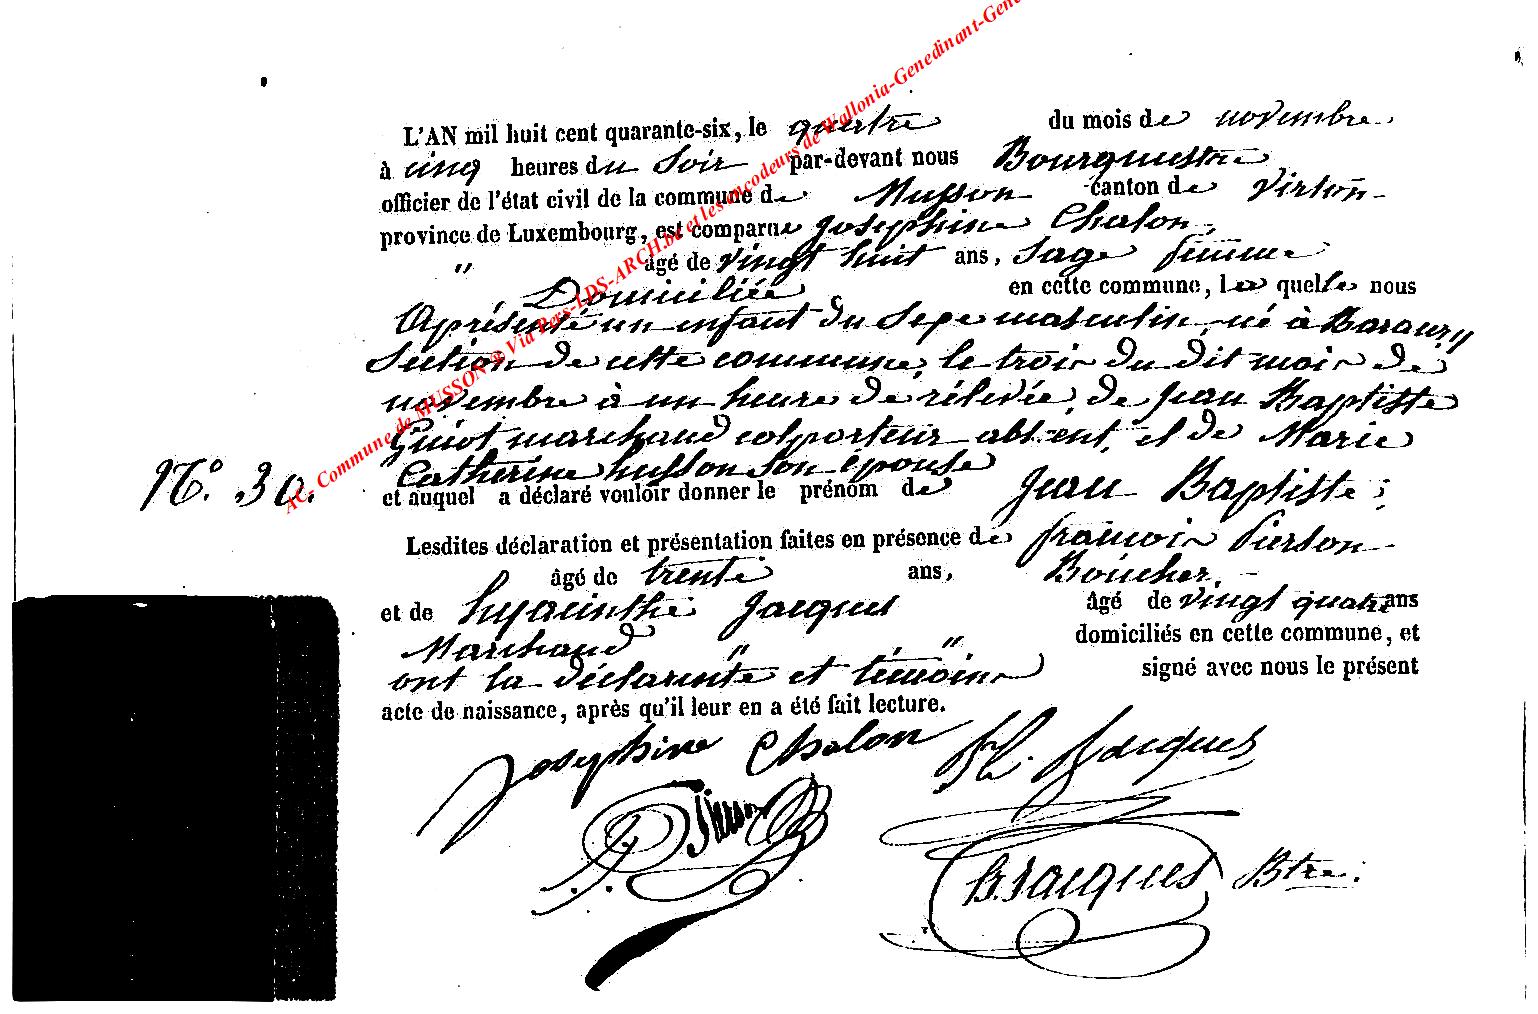 L'AN mil huit cent quarante-six, le quatre du mois de novembre
à cinq heures du Soir par-devant nous Bourguestre
officier de l'état civil de la commune de Musson canton de Virton
province de Luxembourg, est comparue Josephine Chalon,
" âgé de vingt huit ans, Sage femme
Domiciliée en cette commune, la quelle nous
Aprésenté un enfant du Sexe masculin, né à Baranzy
Section de cette commune, le trois du dit mois de
novembre à un heure de rélevée, de Jean Baptiste
Guiot marchand colporteur absent, et de Marie
Catherine husson son épouse
et auquel a déclaré vouloir donner le prénom de Jean Baptiste ;
N° 30.
Lesdites déclaration et présentation faites en présence de francois Pierson
âgé de trente ans, Boucher,
et de hyacinthe Jacques âgé de vingt quatre ans
Marchand " " domiciliés en cette commune, et
ont la déclarante et témoins signé avec nous le présent
acte de naissance, après qu'il leur en a été fait lecture.
Josephine Chalon H. Jacques
Pierson
B. Jacques Btre.
AC. Commune de MUSSON @ Via Pers-LDS-ARCH.be et les encodeurs de Wallonia-Genedinant-Gene